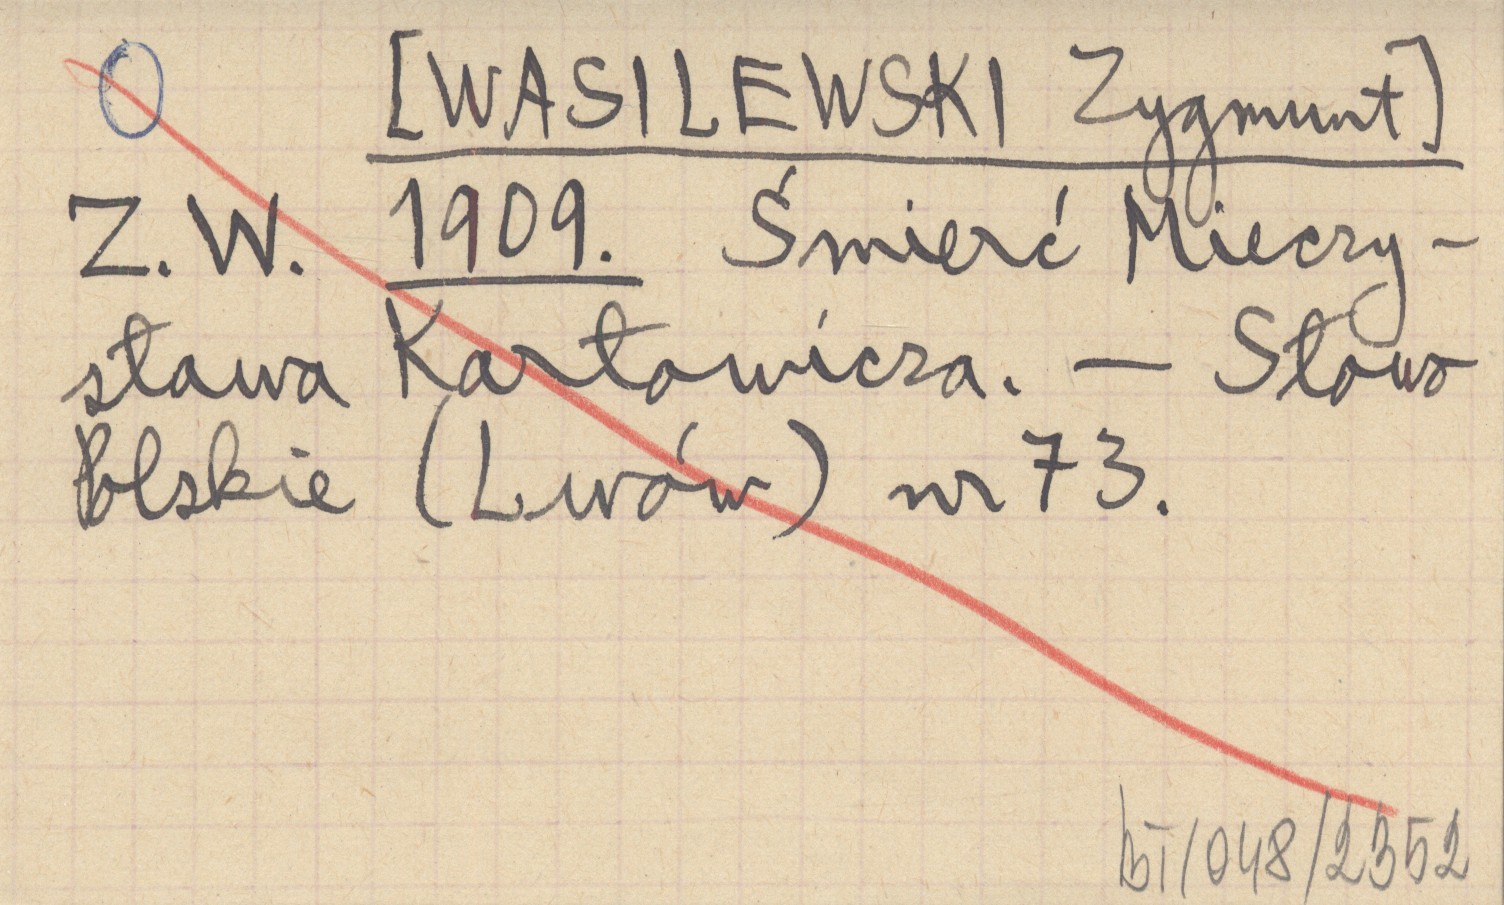 [WASILEWSKI Zygmunt]
Z. W. 1909. Śmierć Mieczy-
sława Karłowicza. — Słowo
Polskie (Lwów) nr 73.
bT/048/2352